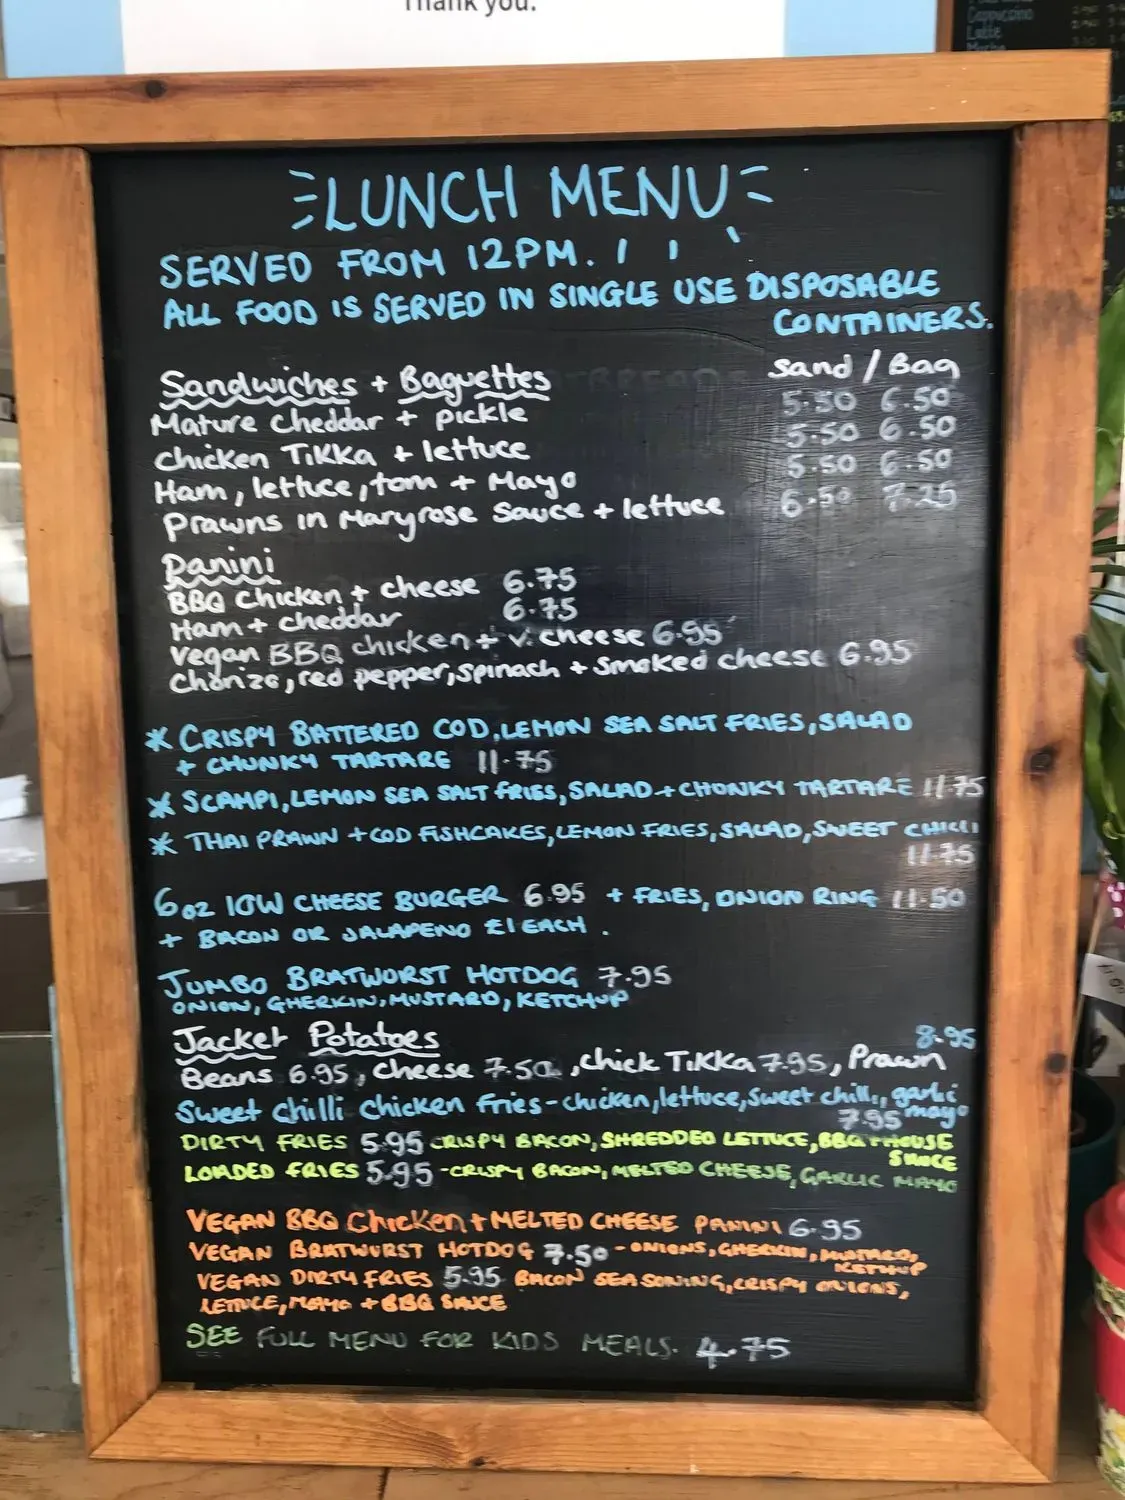 Thank you.
Cappuccino
Latte
Mocha
LUNCH MENU
SERVED FROM 12PM.
ALL FOOD IS SERVED IN SINGLE USE DISPOSABLE
CONTAINERS.
Sandwiches + Baguettes Sand / Bag
Mature Cheddar + pickle 5.50 6.50
Chicken Tikka + lettuce 5.50 6.50
Ham, lettuce, tom + Mayo 5.50 6.50
Prawns in Maryrose Sauce + lettuce 6.50 7.25
Panini
BBQ Chicken + cheese 6.75
Ham + cheddar 6.75
Vegan BBQ chicken + v. cheese 6.95
Chorizo, red pepper, spinach + smoked cheese 6.95
* CRISPY BATTERED COD, LEMON SEA SALT FRIES, SALAD
+ CHUNKY TARTARE 11.75
* SCAMPI, LEMON SEA SALT FRIES, SALAD + CHONKY TARTARE 11.75
* THAI PRAWN + COD FISHCAKES, LEMON FRIES, SALAD, SWEET CHILLI
11.75
6oz IOW CHEESE BURGER 6.95 + FRIES, ONION RING 11.50
+ BACON OR JALAPENO £1 EACH.
JUMBO BRATWURST HOTDOG 7.95
ONION, GHERKIN, MUSTARD, KETCHUP
Jacket Potatoes 8.95
Beans 6.95, Cheese 7.50, Chick Tikka 7.95, Prawn
Sweet Chilli Chicken Fries - chicken, lettuce, sweet chilli, garlic
7.95 mayo
DIRTY FRIES 5.95 CRISPY BACON, SHREDDED LETTUCE, BBQ + HOUSE
SAUCE
LOADED FRIES 5.95 - CRISPY BACON, MELTED CHEESE, GARLIC MAYO
VEGAN BBQ Chicken + MELTED CHEESE PANINI 6.95
VEGAN BRATWURST HOTDOG 7.50 - ONIONS, GHERKIN, MUSTARD,
KETCHUP
VEGAN DIRTY FRIES 5.95 BACON SEASONING, CRISPY ONIONS,
LETTUCE, MAYO + BBQ SAUCE
SEE FULL MENU FOR KIDS MEALS. 4.75